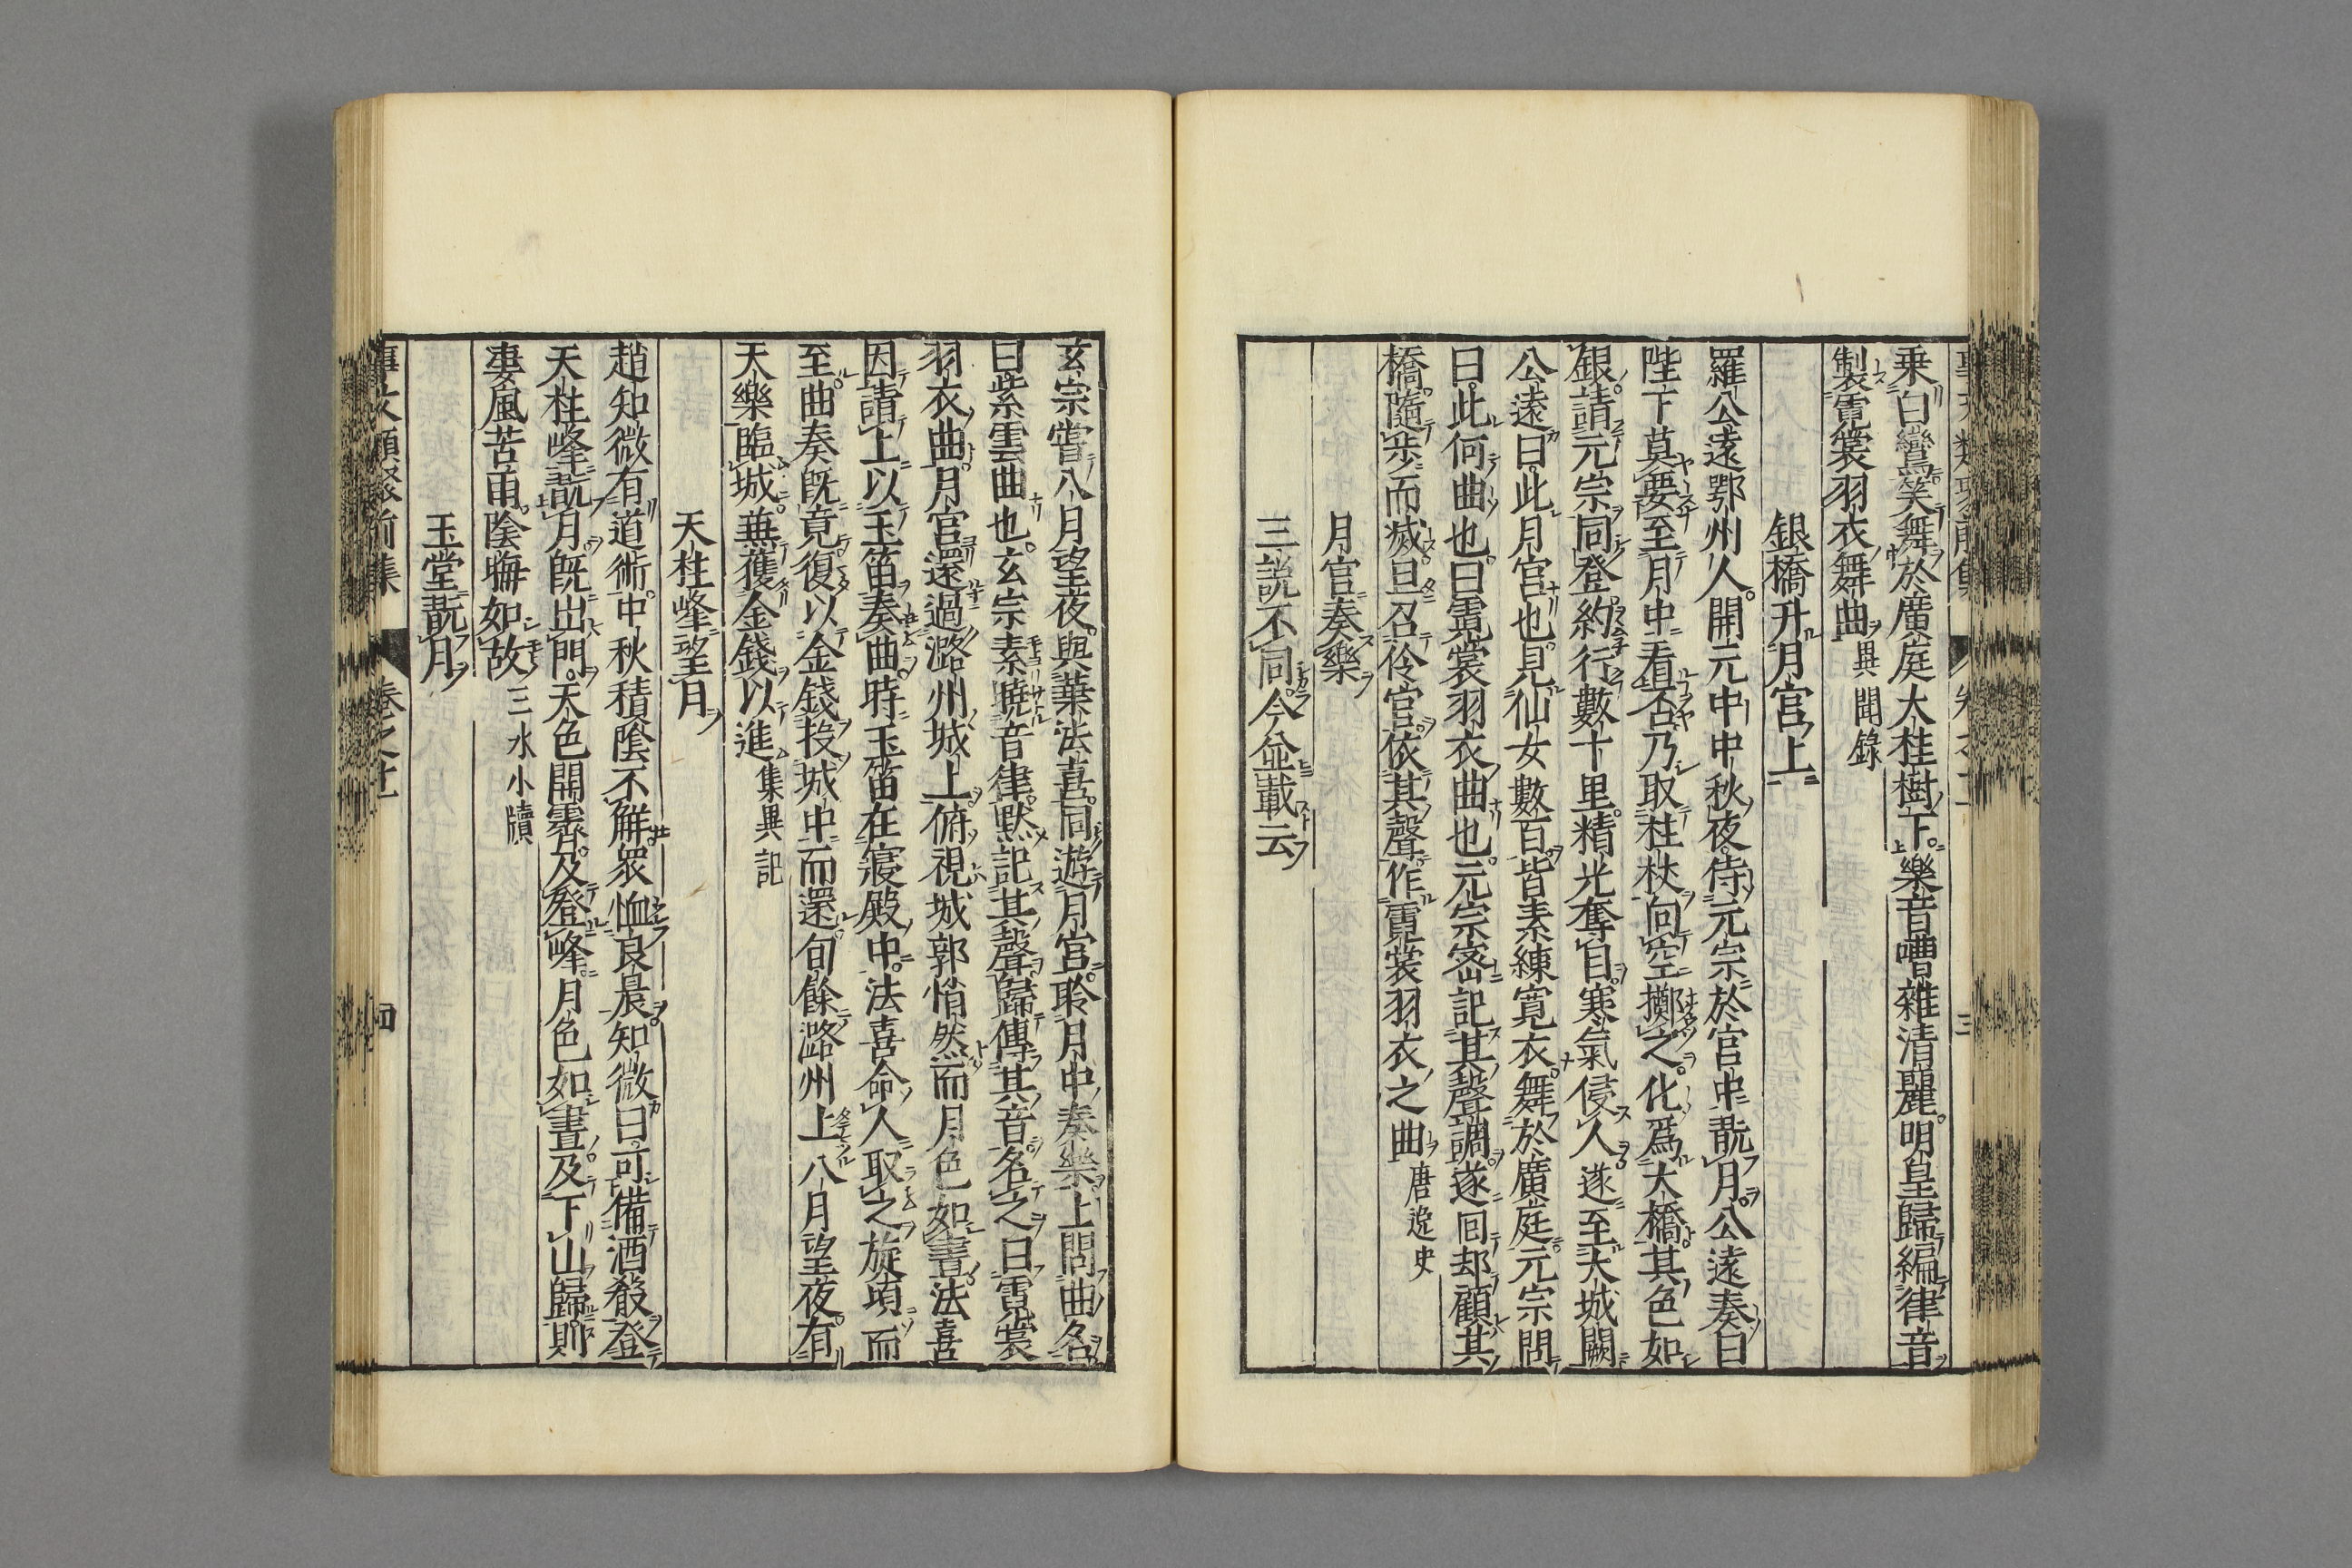 乗白鸞笑舞於廣庭大桂樹下樂音嘈雜清麗明皇歸編律音
製霓裳羽衣舞曲異聞錄
銀橋升月宮上
羅公遠鄂州人開元中中秋夜侍元宗於宮中翫月公遠奏曰
陛下莫要至月中看否乃取桂杖向空擲之化爲大橋其色如
銀請元宗同登約行數十里精光奪目寒氣侵人遂至大城闕
公遠曰此月宮也見仙女數百皆素練寛衣舞於廣庭元宗問
曰此何曲也曰霓裳羽衣曲也元宗宻記其聲調遂囘却顧其
橋隨歩而滅旦召伶官依其聲作霓裳羽衣之曲唐逸史
月宮奏樂
三説不同今並載云
玄宗嘗八月望夜與葉法喜同遊月宮聆月中奏樂上問曲名
曰紫雲曲也玄宗素曉音律默記其聲歸傳其音名之曰霓裳
羽衣曲月宮還過潞州城上俯視城郭悄然而月色如晝法喜
因請上以玉笛奏曲時玉笛在寢殿中法喜命人取之旋頃而
至曲奏既竟復以金錢投城中而還旬餘潞州上八月望夜有
天樂臨城兼獲金錢以進集異記
天柱峰望月
趙知微有道術中秋積陰不觧衆恤良晨知微曰可備酒殽登
天柱峰翫月既出門天色開霽及登峰月色如晝及下山歸則
凄風苦雨陰晦如故三水小牘
玉堂翫月
事文類聚前集 卷之十一 四